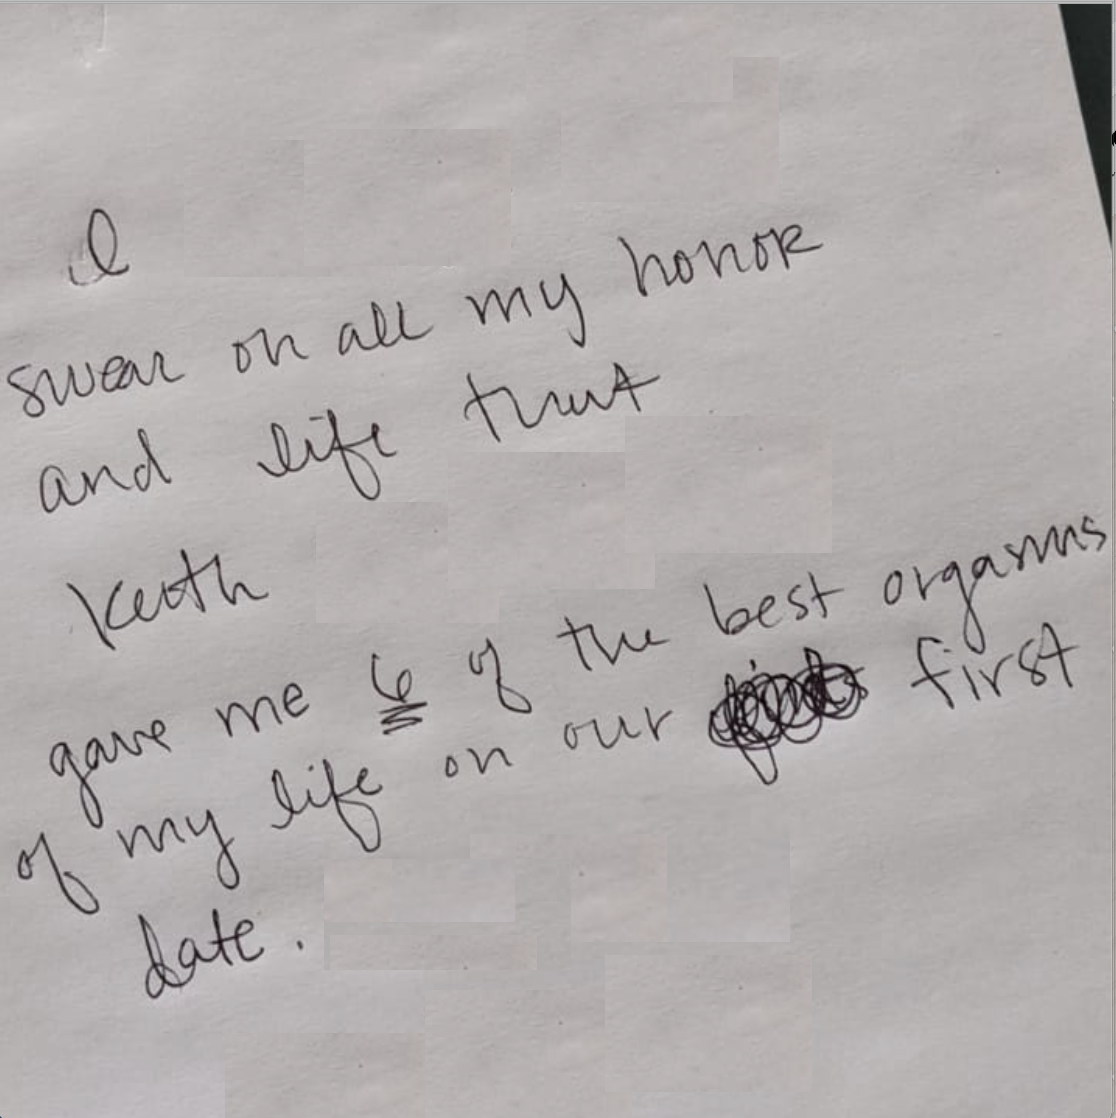 I
swear on all my honor
and life trust
Keith
gave me 6 of the best orgasms
of my life on our first
date.